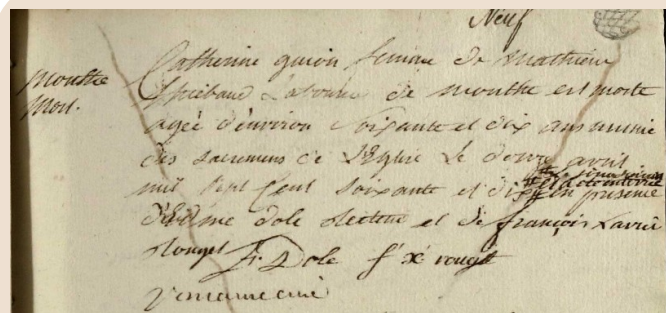 Neuf
mouthe
mort.
Catherine guion femme de mathieu
thiebaud Laboureur de mouthe est morte
agée d'environ soixante et dix ans munie
des sacremens de L'Eglise Le douze avril
mil sept cent soixante et dix en presence
et a été inhumée
d'Edme dole recteur et de françois Xavier
rouget F. Dole f x rouget
curé